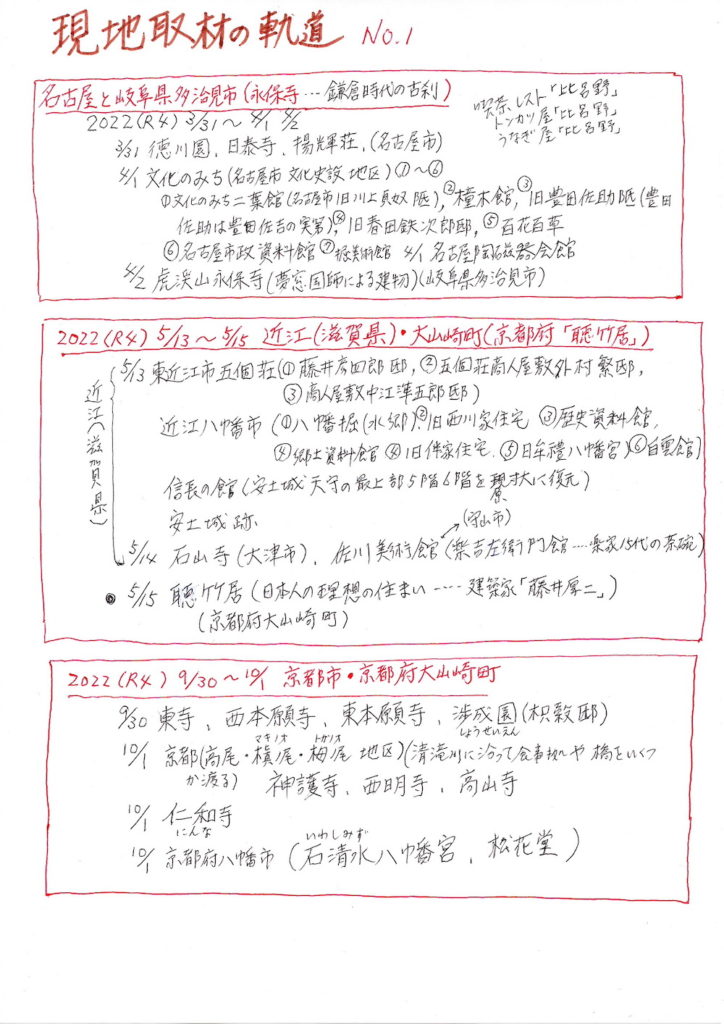 現地取材の軌道 No.1
名古屋と岐阜県多治見市(永保寺…鎌倉時代の古刹)
喫茶レスト「比呂野」
トンカツ屋「比呂野」
うなぎ屋「比呂野」
2022(R4) 3/31～4/1 4/2
3/31 徳川園、日泰寺、揚輝荘、(名古屋市)
4/1 文化のみち(名古屋市文化史設地区)①～⑥
①文化のみち二葉館(名古屋市旧川上貞奴邸)、②橦木館、③旧豊田佐助邸(豊田
佐助は豊田佐吉の実弟)、④旧春田鉄次郎邸、⑤百花百草
⑥名古屋市政資料館 ⑦堀美術館 4/1 名古屋陶磁器会館
4/2 虎渓山永保寺(夢窓国師による建物)(岐阜県多治見市)
2022(R4) 5/13～5/15 近江(滋賀県)・大山崎町(京都府「聴竹居」)
近江(滋賀県)
5/13 東近江市五個荘(①藤井彦四郎邸、②五個荘商人屋敷外村繁邸、
③商人屋敷中江準五郎邸)
近江八幡市(①八幡堀(水郷)、②旧西川家住宅 ③歴史資料館、
④郷土資料館 ④旧伴家住宅、⑤日牟禮八幡宮、⑥白雲館)
信長の館(安土城天守の最上部5階6階を原寸大に復元)
安土城跡
(守山市)
5/14 石山寺(大津市)、佐川美術館(樂吉左衛門館……楽家15代の茶碗)
● 5/15 聴竹居(日本人の理想の住まい----建築家「藤井厚二」)
(京都府大山崎町)
2022(R4) 9/30～10/1 京都市・京都府大山崎町
9/30 東寺、西本願寺、東本願寺、渉成園(枳殻邸)
しょうせいえん
マキノオ トガノオ
10/1 京都(高尾・槇尾・栂尾地区)(清滝川に沿って食事処や橋をいくつ
か渡る) 神護寺、西明寺、高山寺
10/1 仁和寺
にんな
いわしみず
10/1 京都府八幡市(石清水八幡宮、松花堂)